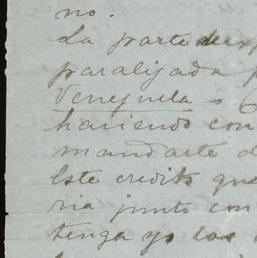 no.
La parte
paralizada
Venezuela o
haciendo con
mandarte d
Este credito que
ria junto con
tenga yo las